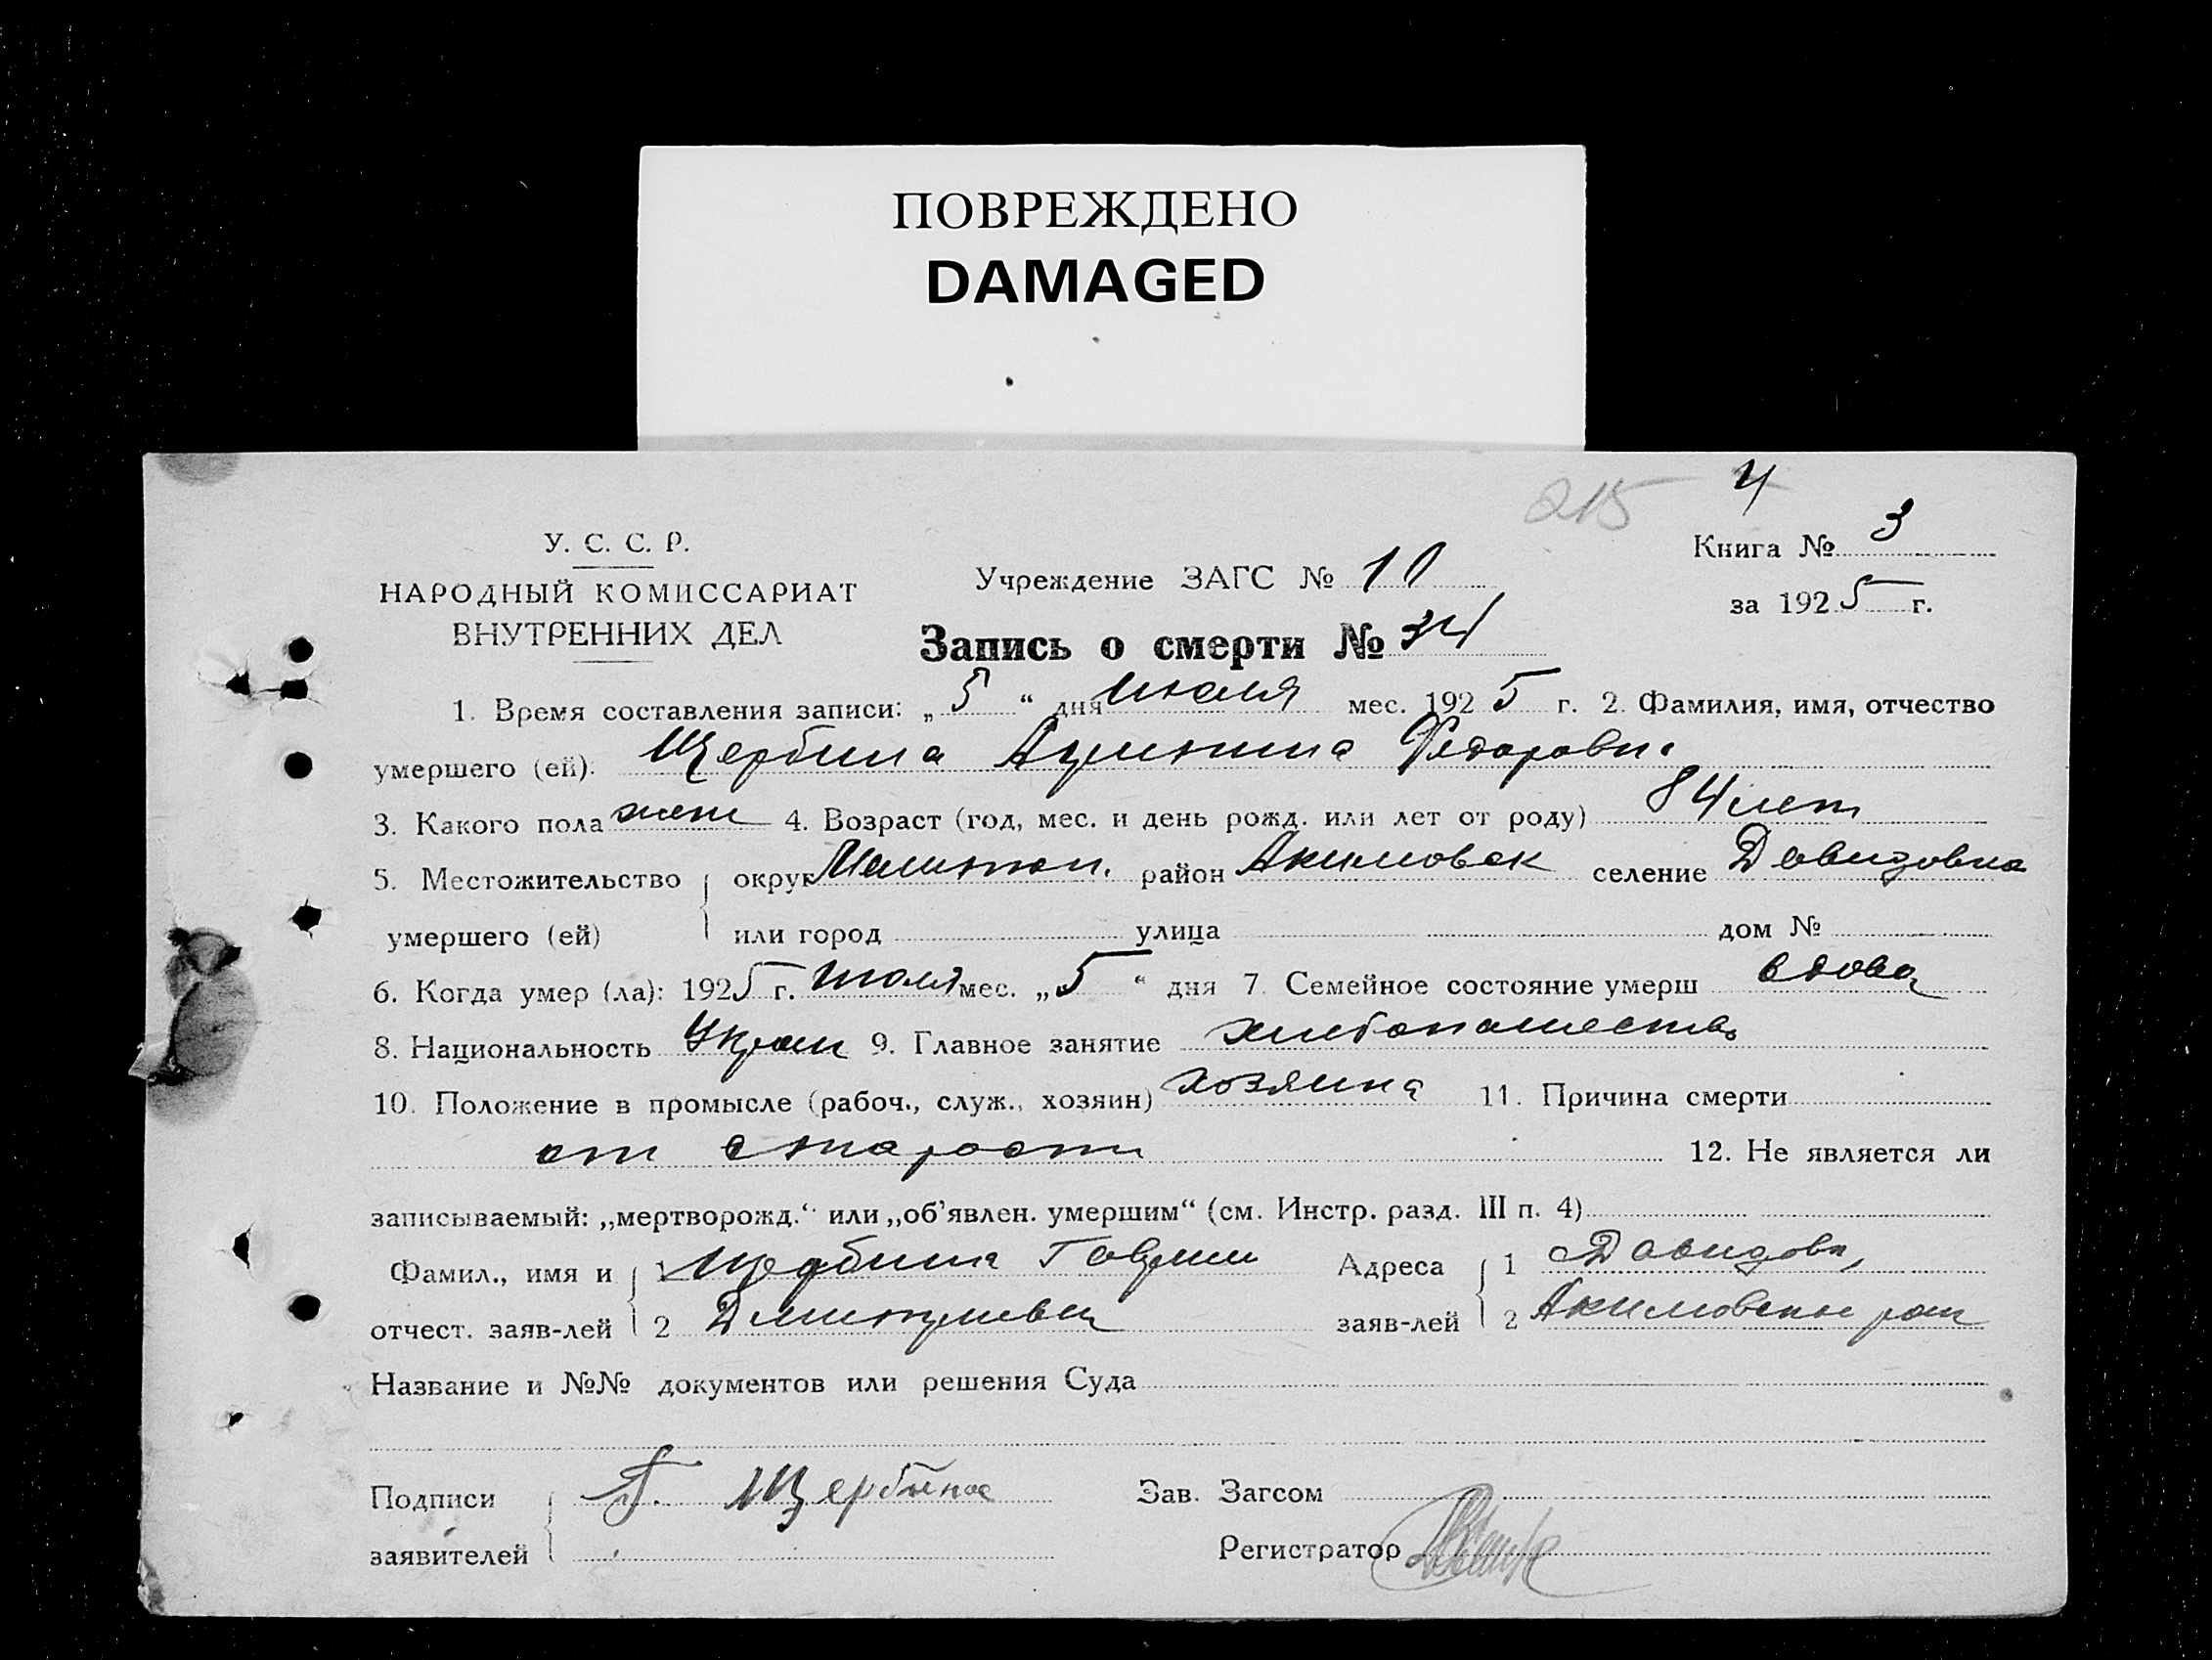 ПОВРЕЖДЕНО
DAMAGED
215 4
У. С. С. Р.
НАРОДНЫЙ КОМИССАРИАТ
ВНУТРЕННИХ ДЕЛ
Учреждение ЗАГС № 10
Книга № 3
за 1925 г.
Запись о смерти № 34
1. Время составления записи: „5“ дня июля мес. 1925 г. 2. Фамилия, имя, отчество
умершего (ей). Щербина Федоровн
3. Какого пола жен 4. Возраст (год, мес. и день рожд. или лет от роду) 84 лет
5. Местожительство округ Мелитоп. район Акимовск селение Давидовка
умершего (ей) или город улица дом №
6. Когда умер (ла): 1925 г. июля мес. „5“ дня 7. Семейное состояние умерш вдова
8. Национальность Украин 9. Главное занятие хлебопашество
10. Положение в промысле (рабоч., служ., хозяин) хозяина 11. Причина смерти
от старости 12. Не является ли
записываемый: „мертворожд.“ или „об'явлен. умершим“ (см. Инстр. разд. III п. 4)
Фамил., имя и 1 Щербина Гаврил Адреса 1 Давидовк,
отчест. заяв-лей 2 Дмитриевич заяв-лей 2 Акимовский рай
Название и №№ документов или решения Суда
Подписи Г. Щербина Зав. Загсом
заявителей Регистратор